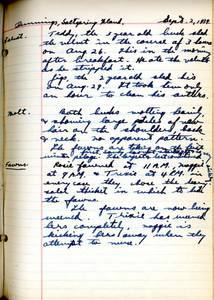 Cummings, Saltspring Island. Sept. 2, 1958
Teddy, the 3 year old buck shed
the velvet in the course of 3 hours
on Aug 26. This in the morning
after breakfast. He ate the velvet
as he stripped it.
the 2 year old shed his
on Aug. 29. It took him out
an hour to clean his antlers.
Molt. Both bucks molting heavily,
& showing large patches of new
hair on the shoulders, back
& neck. No apparent pattern.
The fawns are they on the
Fawns
Rosie fawned at 11 AM,
at 9 AM, & Trixie at 4 PM. In
every case they chose the
thicket in which to
the fawns.
The fawns are now being
weaned. Trixie has weaned
hers completely,
kicking hers away when they
attempt to nurse.